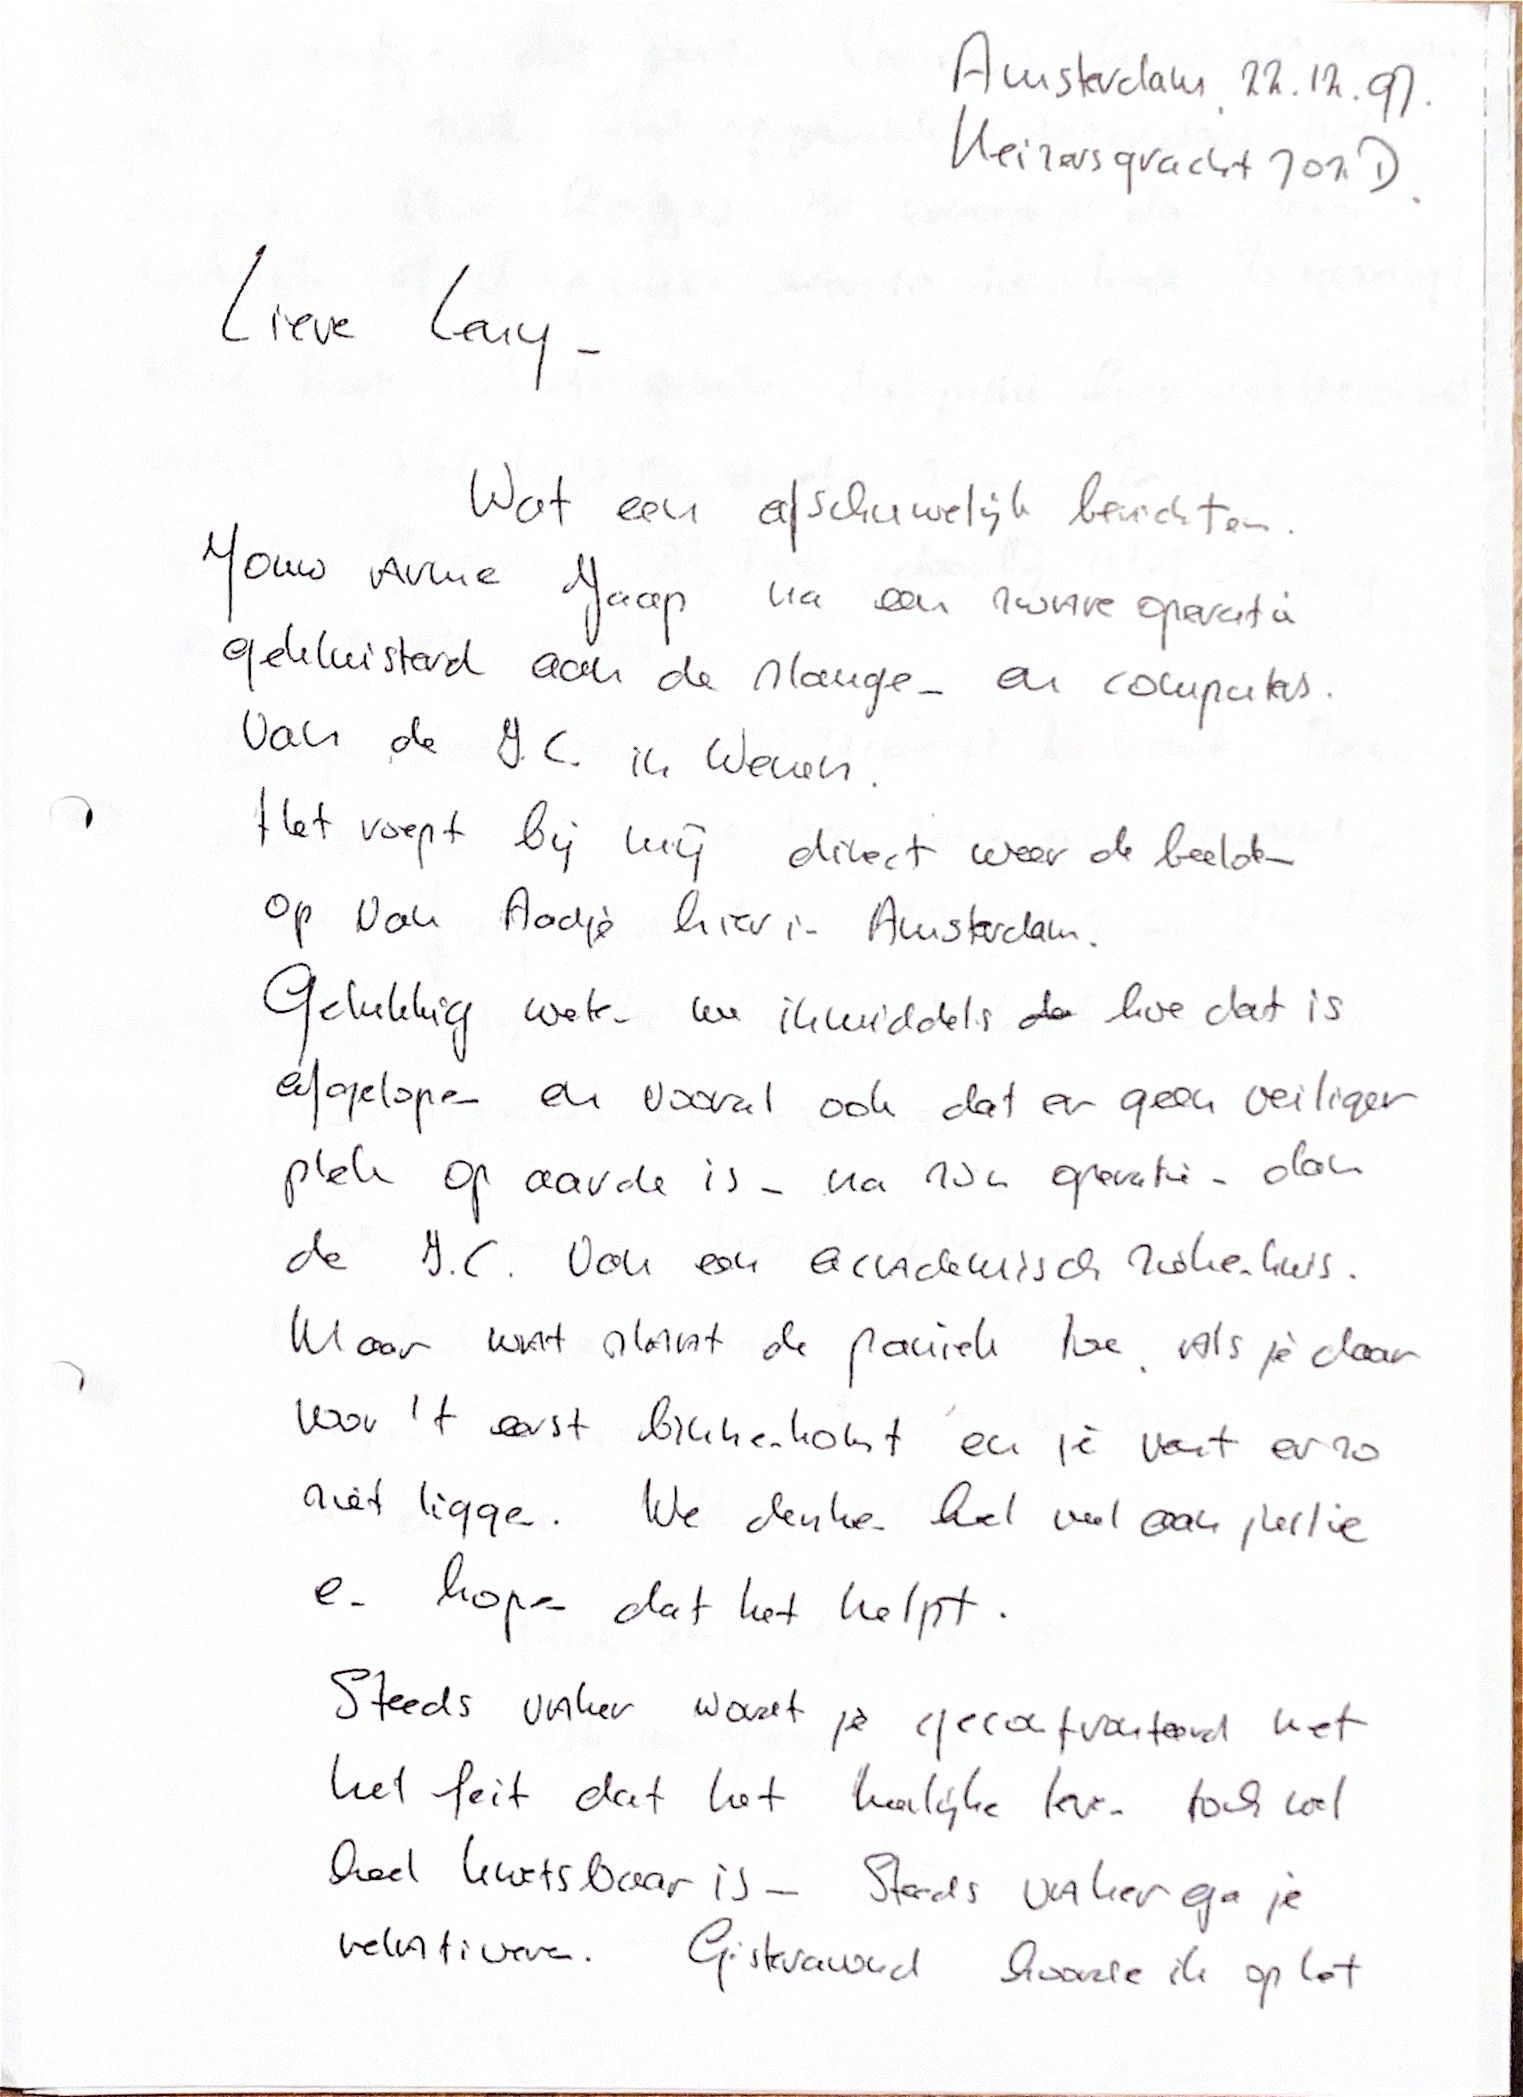 Amsterdam. 22.12.97.
Keizersgracht 702 D.
Lieve Leny -
Wat een afschuwelijk berichten.
Jouw arme Jaap na een zware operatie
gekluisterd aan de slangen en computers.
Van de I.C. in Wenen.
Het roept bij mij direct weer de beelden
op van Aadje hier in Amsterdam.
Gelukkig weten we inmiddels de hoe dat is
afgelopen en vooral ook dat er geen veiliger
plek op aarde is - na zo'n operatie - dan
de I.C. van een academisch ziekenhuis.
Maar wat slaat de paniek toe. Als je daar
voor 't eerst binnenkomt en je vent er zo
ziet liggen. We denken heel veel aan jullie
en hopen dat het helpt.
Steeds vaker wordt je geconfronteerd met
het feit dat het heerlijke leven toch wel
heel kwetsbaar is - Steeds vaker ga je
relativeren. Gisteravond hoorde ik op het